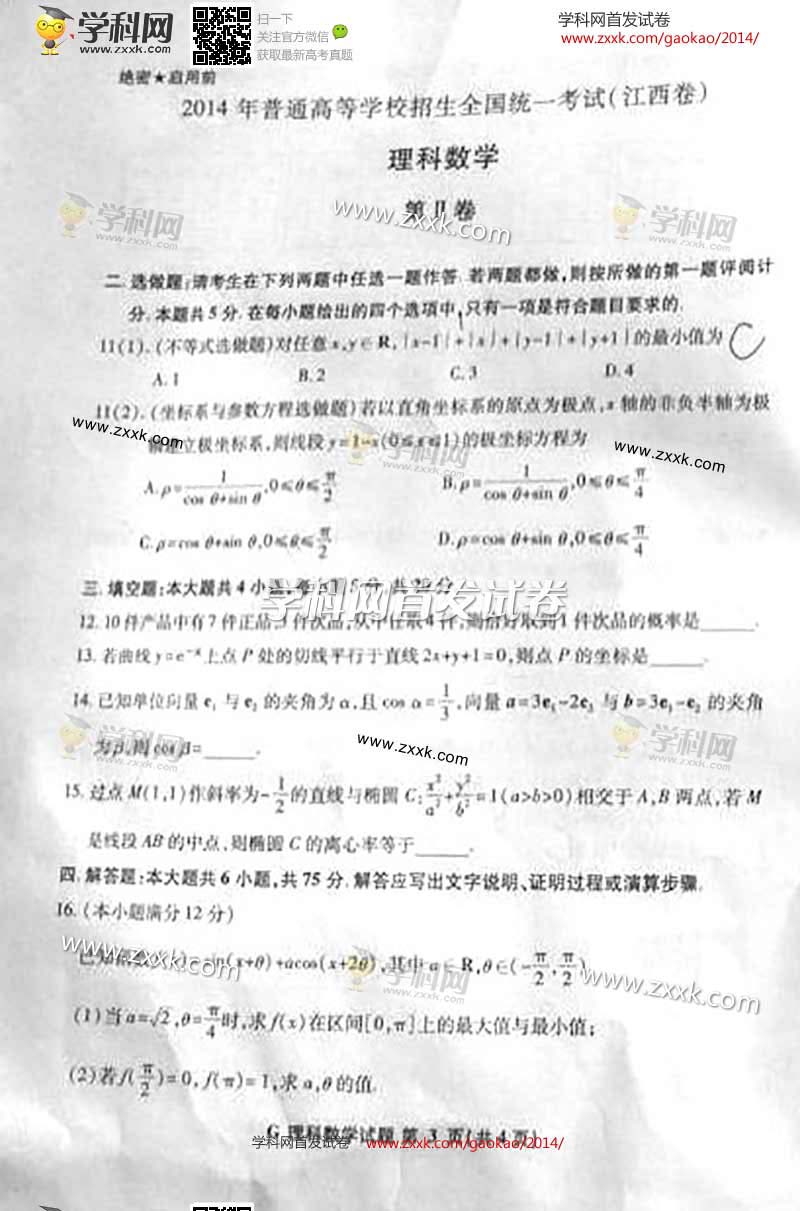 学科网
www.zxxk.com
扫一下
关注官方微信
获取最新高考真题
学科网首发试卷
www.zxxk.com/gaokao/2014/
绝密★启用前
2014年普通高等学校招生全国统一考试(江西卷)
理科数学
第Ⅱ卷
学科网
zxxk.com
www.zxxk.com
学科网
zxxk.com
二.选做题:请考生在下列两题中任选一题作答.若两题都做,则按所做的第一题评阅计
分.本题共5分.在每小题给出的四个选项中,只有一项是符合题目要求的.
11(1).(不等式选做题)对任意x,y∈R,|x-1|+|x|+|y-1|+|y+1|的最小值为 C
A.1 B.2 C.3 D.4
11(2).(坐标系与参数方程选做题)若以直角坐标系的原点为极点,x轴的非负半轴为极
www.zxxk.com
轴建立极坐标系,则线段y=1-x(0≤x≤1)的极坐标方程为
www.zxxk.com
A.ρ=1/(cos θ+sin θ),0≤θ≤π/2 B.ρ=1/(cos θ+sin θ),0≤θ≤π/4
C.ρ=cos θ+sin θ,0≤θ≤π/2 D.ρ=cos θ+sin θ,0≤θ≤π/4
三.填空题:本大题共4小题,每小题5分,共20分.
学科网首发试卷
12.10件产品中有7件正品,3件次品,从中任取4件,则恰好取到1件次品的概率是_____.
13.若曲线y=e⁻ˣ上点P处的切线平行于直线2x+y+1=0,则点P的坐标是_____.
14.已知单位向量e₁与e₂的夹角为α,且cos α=1/3,向量a=3e₁-2e₂与b=3e₁-e₂的夹角
学科网
zxxk.com
www.zxxk.com
学科网
zxxk.com
为β,则cos β=_____.
15.过点M(1,1)作斜率为-1/2的直线与椭圆C:x²/a²+y²/b²=1(a>b>0)相交于A,B两点,若M
是线段AB的中点,则椭圆C的离心率等于_____.
四.解答题:本大题共6小题,共75分.解答应写出文字说明、证明过程或演算步骤.
16.(本小题满分12分)
www.zxxk.com
已知函数f(x)=sin(x+θ)+acos(x+2θ),其中a∈R,θ∈(-π/2,π/2).
www.zxxk.com
(1)当a=√2,θ=π/4时,求f(x)在区间[0,π]上的最大值与最小值;
(2)若f(π/2)=0,f(π)=1,求a,θ的值.
G 理科数学试题 第3页(共4页)
学科网首发试卷 www.zxxk.com/gaokao/2014/